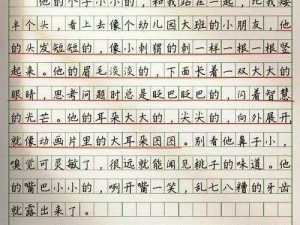 他的个子小小的，和我站在一起，比我矮
半个头，看上去像个幼儿园大班的小朋友，他
的头发短短的，像小刺猬的刺一样一根一根竖
起来。他的眉毛淡淡的，下面长着一双大大的
眼睛，思考问题时总是眨巴眨巴的，闪着智慧
的光芒。他的大耳朵大大的，尖尖的，向外展开，
就像动画片里的大耳朵图图。别看他鼻子小，
嗅觉可灵敏了，很远就能闻见桃子的味道。他
的嘴巴小小的，咧开嘴一笑，乱七八糟的牙齿
就露出来了。